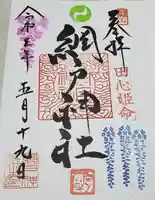 奉拝
田心姫命
網戸神社
令和三年
五月十九日